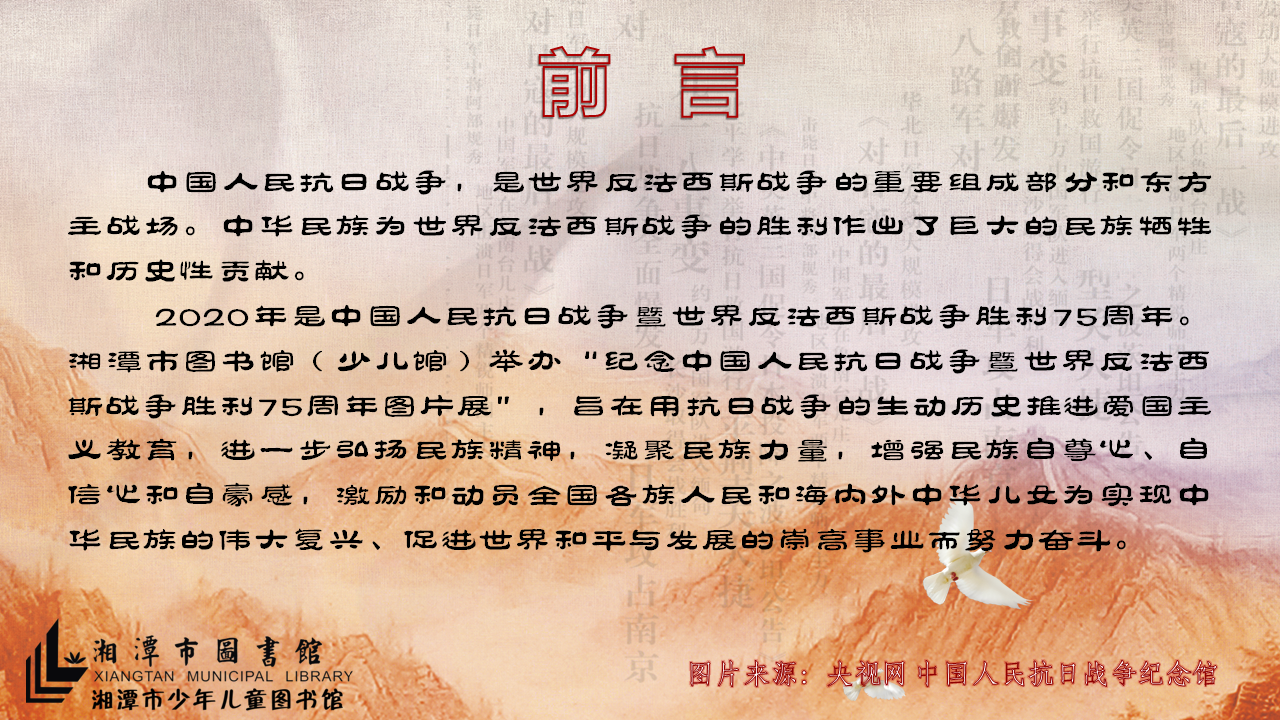 前 言
中国人民抗日战争，是世界反法西斯战争的重要组成部分和东方
主战场。中华民族为世界反法西斯战争的胜利作出了巨大的民族牺牲
和历史性贡献。
2020年是中国人民抗日战争暨世界反法西斯战争胜利75周年。
湘潭市图书馆（少儿馆）举办“纪念中国人民抗日战争暨世界反法西
斯战争胜利75周年图片展”，旨在用抗日战争的生动历史推进爱国主
义教育，进一步弘扬民族精神，凝聚民族力量，增强民族自尊心、自
信心和自豪感，激励和动员全国各族人民和海内外中华儿女为实现中
华民族的伟大复兴、促进世界和平与发展的崇高事业而努力奋斗。
湘潭市圖書館
XIANGTAN MUNICIPAL LIBRARY
湘潭市少年儿童图书馆
图片来源：央视网 中国人民抗日战争纪念馆